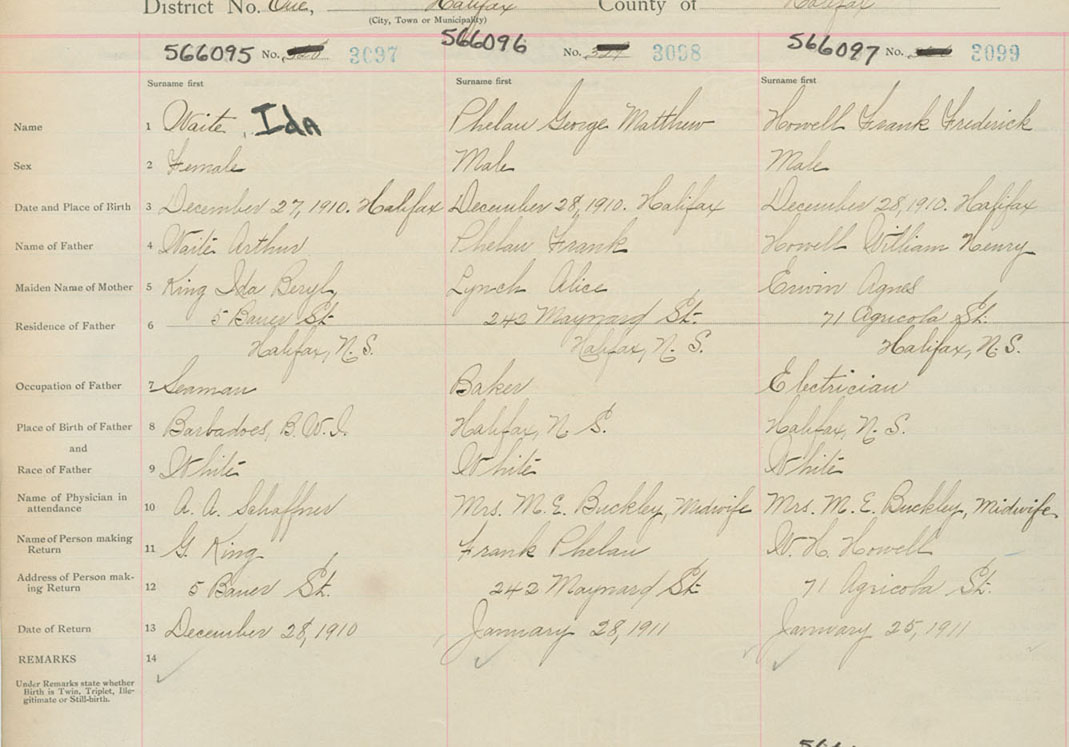 District No. One, Halifax County of Halifax
(City, Town or Municipality)
566095 No. 3097 566096 No. 3098 566097 No. 3099
Surname first Surname first Surname first
Name 1 Waite, Ida Phelan George Matthew Howell Frank Frederick
Sex 2 Female Male Male
Date and Place of Birth 3 December 27, 1910. Halifax December 28, 1910. Halifax December 28, 1910. Halifax
Name of Father 4 Waite Arthur Phelan Frank Howell William Henry
Maiden Name of Mother 5 King Ida Beryl Lynch Alice Erwin Agnes
Residence of Father 6 5 Bauer St. 242 Maynard St. 71 Agricola St.
Halifax, N. S. Halifax, N. S. Halifax, N. S.
Occupation of Father 7 Seaman Baker Electrician
Place of Birth of Father 8 Barbadoes, B. W. I. Halifax, N. S. Halifax, N. S.
and
Race of Father 9 White White White
Name of Physician in attendance 10 A. A. Schaffner Mrs. M. E. Buckley, Midwife Mrs. M. E. Buckley, Midwife
Name of Person making Return 11 G. King Frank Phelan W. H. Howell
Address of Person mak-
ing Return 12 5 Bauer St. 242 Maynard St. 71 Agricola St.
Date of Return 13 December 28, 1910 January 28, 1911 January 25, 1911
REMARKS 14
Under Remarks state whether
Birth is Twin, Triplet, Ille-
gitimate or Still-birth.